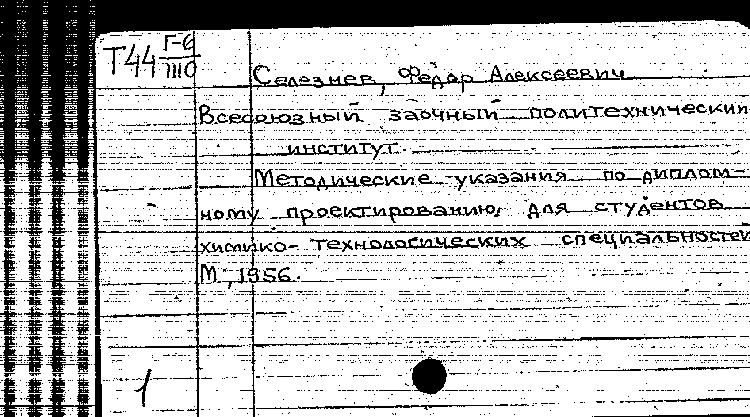 Т44 Г-6
1110
Селезнев, Федор Алексеевич
Всесоюзный заочный политехнический
институт.
Методические указания по диплом-
ному проектированию, для студентов
химико-технологических специальностей
М., 1956.
1